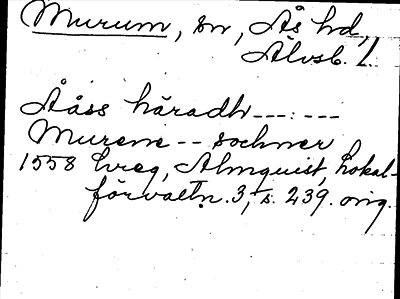 Murum, sn, Ås hd,
Älvsb. l.
Ååss häradh ---:---
Murem -- sochner
1558 hreg, Almquist, Lokal-
förvaltn. 3, s. 239. orig.